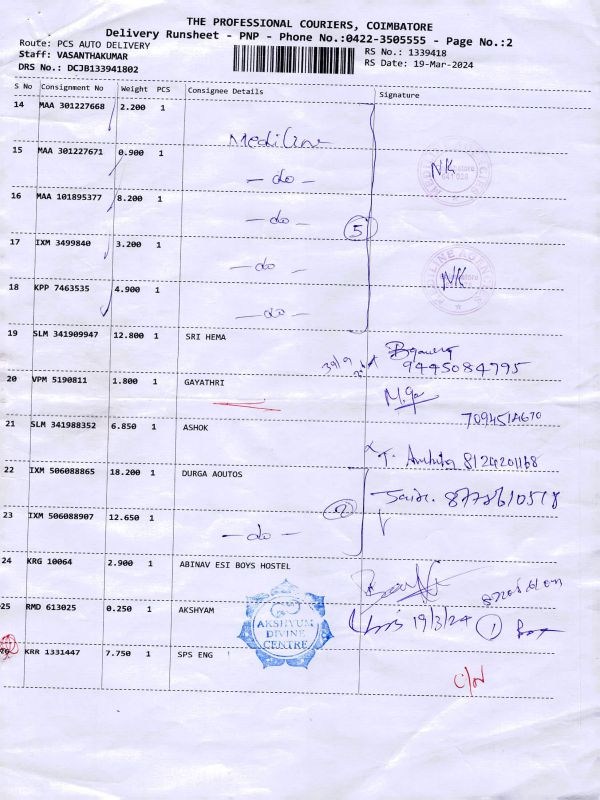 THE PROFESSIONAL COURIERS, COIMBATORE
Delivery Runsheet - PNP - Phone No.:0422-3505555 - Page No.:2
Route: PCS AUTO DELIVERY
RS No.: 1339418
Staff: VASANTHAKUMAR
RS Date: 19-Mar-2024
DRS No.: DCJB133941802
S No Consignment No Weight PCS Consignee Details Signature
14 MAA 301227668 2.200 1
15 MAA 301227671 0.900 1 - do - NK
16 MAA 101895377 8.200 1 - do -
5
17 IXM 3499840 3.200 1 - do - NK
18 KPP 7463535 4.900 1 - do -
19 SLM 341909947 12.800 1 SRI HEMA
9445084795
20 VPM 5190811 1.800 1 GAYATHRI
7094514670
21 SLM 341988352 6.850 1 ASHOK
8124201168
22 IXM 506088865 18.200 1 DURGA AOUTOS
8778610518
2
23 IXM 506088907 12.650 1 - do -
24 KRG 10064 2.900 1 ABINAV ESI BOYS HOSTEL
25 RMD 613025 0.250 1 AKSHYAM 19/3/24 1
AKSHYUM
DIVINE
CENTRE
KRR 1331447 7.750 1 SPS ENG